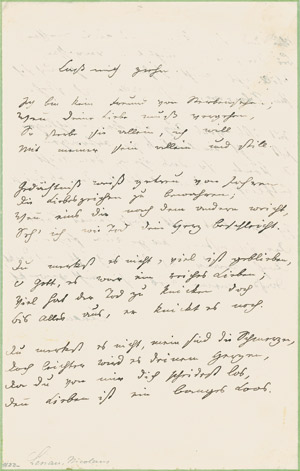 Laß mich ziehn.
Ich bin kein Freund von Sterbensehen;
Wenn deine Liebe muß vergehen,
So sterbe sie allein, ich will
Mit meiner sein allein und still.
Gedächtniß weiß getreu von Jahren
Die Liebeszeichen zu bewahren;
Wenn eins dir nach dem andern weicht,
Seh' ich wie Tod dein Herz beschleicht.
Du merkest es nicht, viel ist geblieben,
O Gott, es war ein reiches Lieben;
Viel hat der Tod zu knicken doch
bis Alles aus, er knickt es noch.
Du merkest es nicht, mein sind die Schmerzen,
Doch leichter wird es deinem Herzen,
Da du von mir dich scheidest los,
Den Lieben ist ein banges Loos.
Lenau, Nicolaus